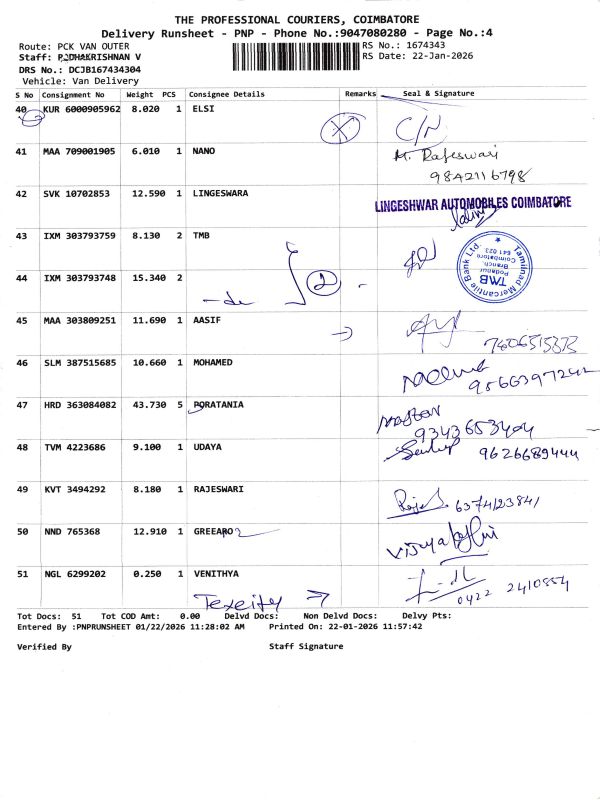 THE PROFESSIONAL COURIERS, COIMBATORE
Delivery Runsheet - PNP - Phone No.:9047080280 - Page No.:4
Route: PCK VAN OUTER
RS No.: 1674343
Staff: RADHAKRISHNAN V
RS Date: 22-Jan-2026
DRS No.: DCJB167434304
Vehicle: Van Delivery
S No Consignment No Weight PCS Consignee Details Remarks Seal & Signature
40 KUR 6000905962 8.020 1 ELSI
C/N
41 MAA 709001905 6.010 1 NANO
M. Rajeswari
9842116798
42 SVK 10702853 12.590 1 LINGESWARA
LINGESHWAR AUTOMOBILES COIMBATORE
43 IXM 303793759 8.130 2 TMB
Tamilnad Mercantile Bank Ltd.
TMB
Podanur
Branch.
Coimbatore
641 023
44 IXM 303793748 15.340 2
2
45 MAA 303809251 11.690 1 AASIF
46 SLM 387515685 10.660 1 MOHAMED
47 HRD 363084082 43.730 5 PORATANIA
9343653404
48 TVM 4223686 9.100 1 UDAYA
9626689444
49 KVT 3494292 8.180 1 RAJESWARI
6374123841
50 NND 765368 12.910 1 GREEARO
51 NGL 6299202 0.250 1 VENITHYA
0422 2410854
Tot Docs: 51 Tot COD Amt: 0.00 Delvd Docs: Non Delvd Docs: Delvy Pts:
Entered By :PNPRUNSHEET 01/22/2026 11:28:02 AM Printed On: 22-01-2026 11:57:42
Verified By Staff Signature